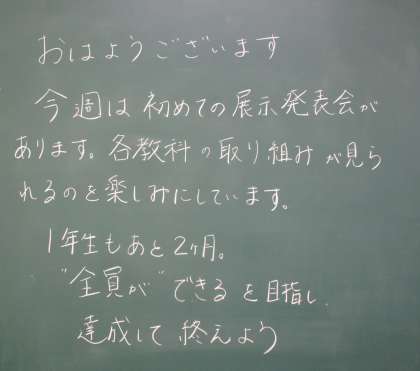 おはようございます
今週は初めての展示発表会が
あります。各教科の取り組みが見ら
れるのを楽しみにしています。
1年生もあと2ヶ月。
"全員が"できるを目指し
達成して終えよう